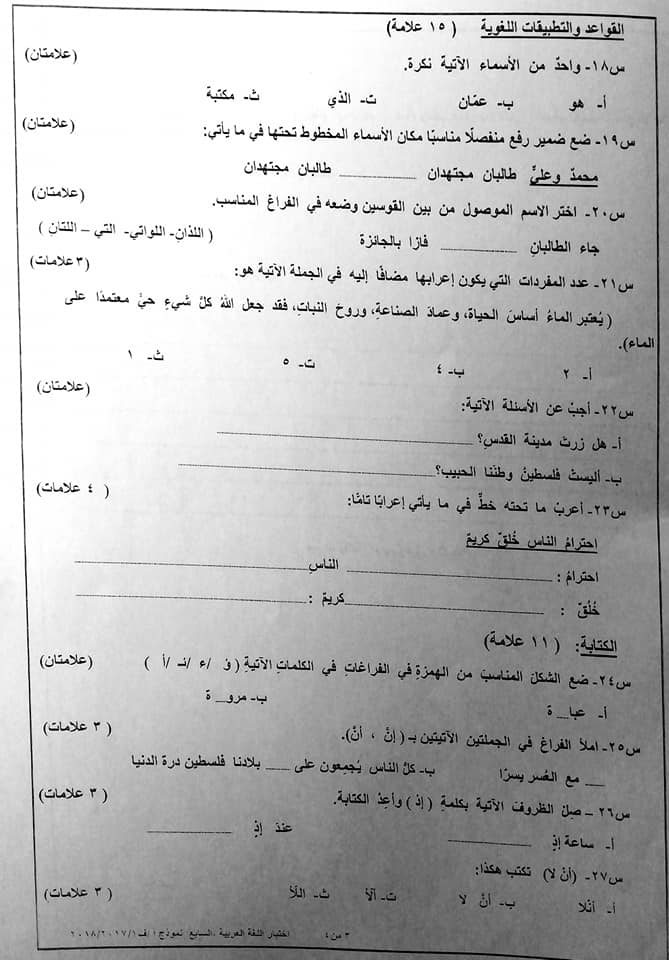 القواعد والتطبيقات اللغوية ( ١٥ علامة)
س١٨- واحدٌ من الأسماء الآتية نكرة. (علامتان)
أ- هو ب- عمّان ت- الذي ث- مكتبة
س١٩- ضع ضمير رفع منفصلًا مناسبًا مكان الأسماء المخطوط تحتها في ما يأتي: (علامتان)
محمدٌ وعليٌّ طالبان مجتهدان ____________ طالبان مجتهدان
س٢٠- اختر الاسم الموصول من بين القوسين وضعه في الفراغ المناسب. (علامتان)
جاء الطالبانِ ____________ فازا بالجائزة ( اللذانِ- اللواتي- التي – اللتانِ )
س٢١- عدد المفردات التي يكون إعرابها مضافًا إليه في الجملة الآتية هو: (٣ علامات)
( يُعتبر الماءُ أساسَ الحياة، وعمادَ الصناعةِ، وروحَ النباتِ، فقد جعل اللهُ كلَّ شيءٍ حيٍّ معتمدًا على
الماء).
أ- ٢ ب- ٤ ت- ٥ ث- ١
س٢٢- أجبْ عن الأسئلة الآتية: (علامتان)
أ- هل زرتَ مدينة القدسِ؟ ____________
ب- أليستْ فلسطينُ وطنَنا الحبيب؟ ____________
س٢٣- أعربْ ما تحته خطٌّ في ما يأتي إعرابًا تامًّا: ( ٤ علامات)
احترامُ الناسِ خُلقٌ كريمٌ
احترامُ : ____________ الناسِ ____________
خُلُقٌ : ____________ كريمٌ : ____________
الكتابة: ( ١١ علامة)
س٢٤- ضع الشكلَ المناسبَ من الهمزةِ في الفراغاتِ في الكلماتِ الآتيةِ ( ؤ /ء /ئـ /أ ) (علامتان)
أ- عبا__ ة ب- مرو__ ة
س٢٥- املأ الفراغ في الجملتين الآتيتين بـ ( إنَّ ، أنّ). ( ٣ علامات)
___ مع العُسر يسرًا ب- كلُّ الناس يُجمِعون على ___ بلادنا فلسطين درة الدنيا
س٢٦ – صِلِ الظروفَ الآتية بكلمةِ ( إذ ) وأعِدْ الكتابة. ( ٣ علامات)
أ- ساعة إذٍ ____________ عندَ إذٍ ____________
س٢٧- (أنْ لا) تكتب هكذا:
أ- أنْلا ب- أنَّ لا ت- ألّا ث- اللّا ( ٣ علامات)
٣ من ٤ اختبار اللغة العربية /السابع/ نموذج ا/ف٢٠١٨/٢٠١٧/١